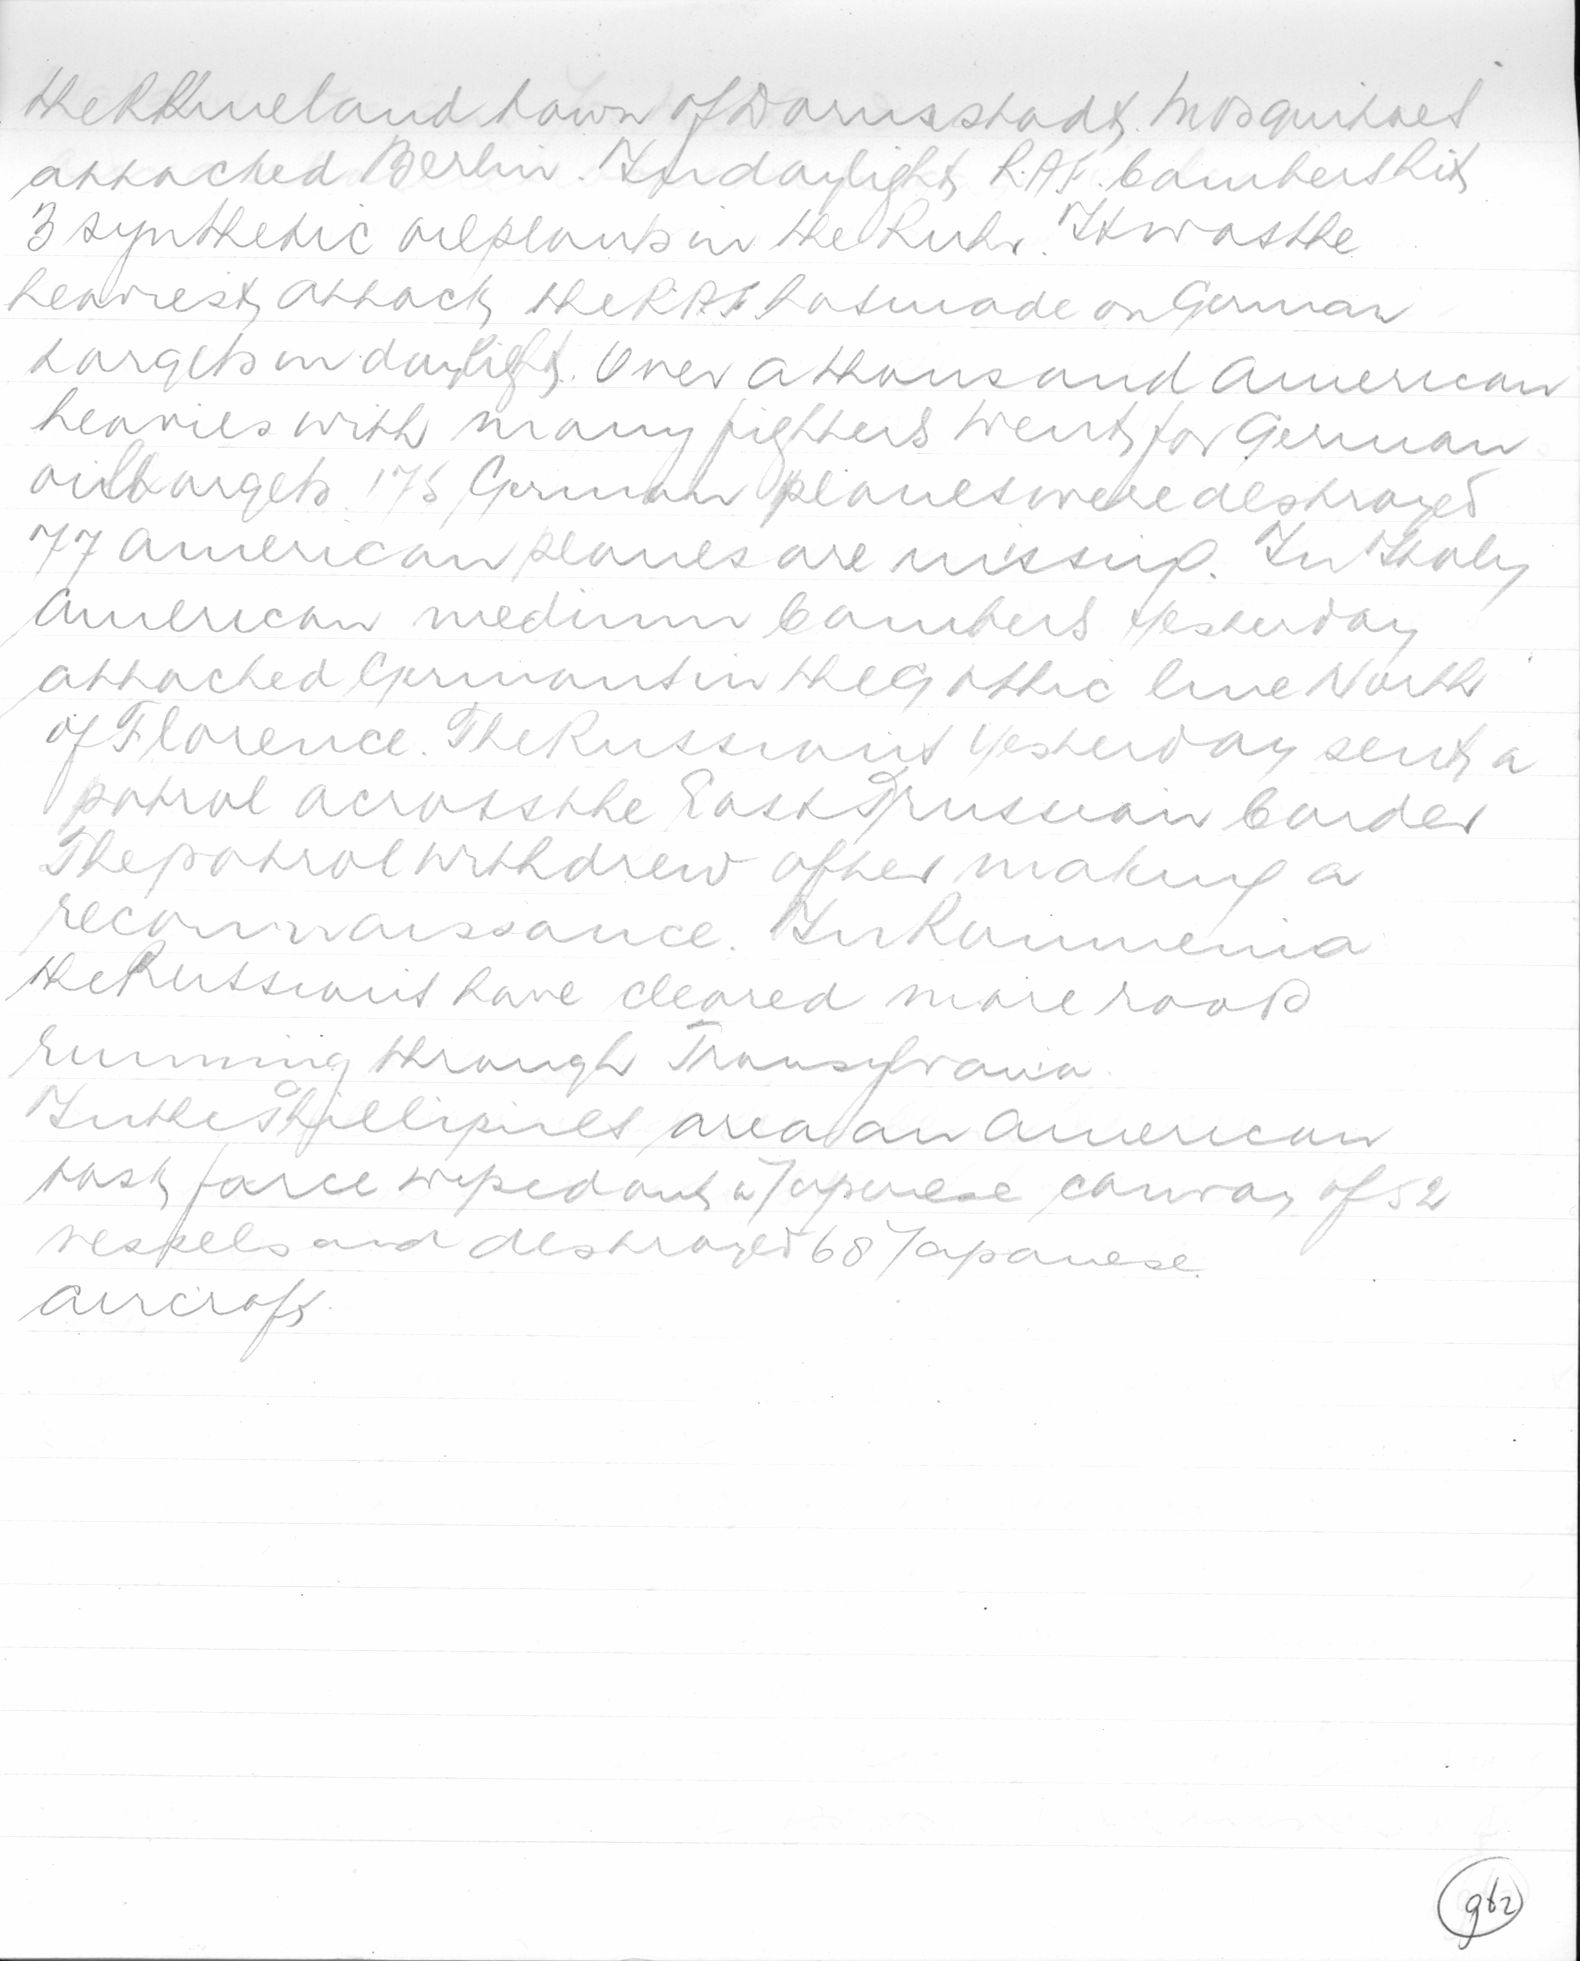 the Rhineland town of Darmsstadt. Mosquitoes
attacked Berlin. In daylight R.A.F. bombers hit
3 synthetic oil plants in the Ruhr. It was the
heaviest attack the R.A.F. has made on German
targets in daylight. Over a thousand American
heavies with many fighters went for German
oil targets. 175 German planes were destroyed
77 American planes are missing. In Italy
American medium bombers yesterday
attacked Germans in the Gothic line North
of Florence. The Russians yesterday sent a
patrol across the East Prussian border
The patrol withdrew after making a
reconnaissance. In Roumenia
the Russians have cleared more road
running through Transylvania.
In the Phillipines area an American
task force wiped out a Japenese convoy of 52
vessels and destroyed 68 Japanese
aircraft.
962